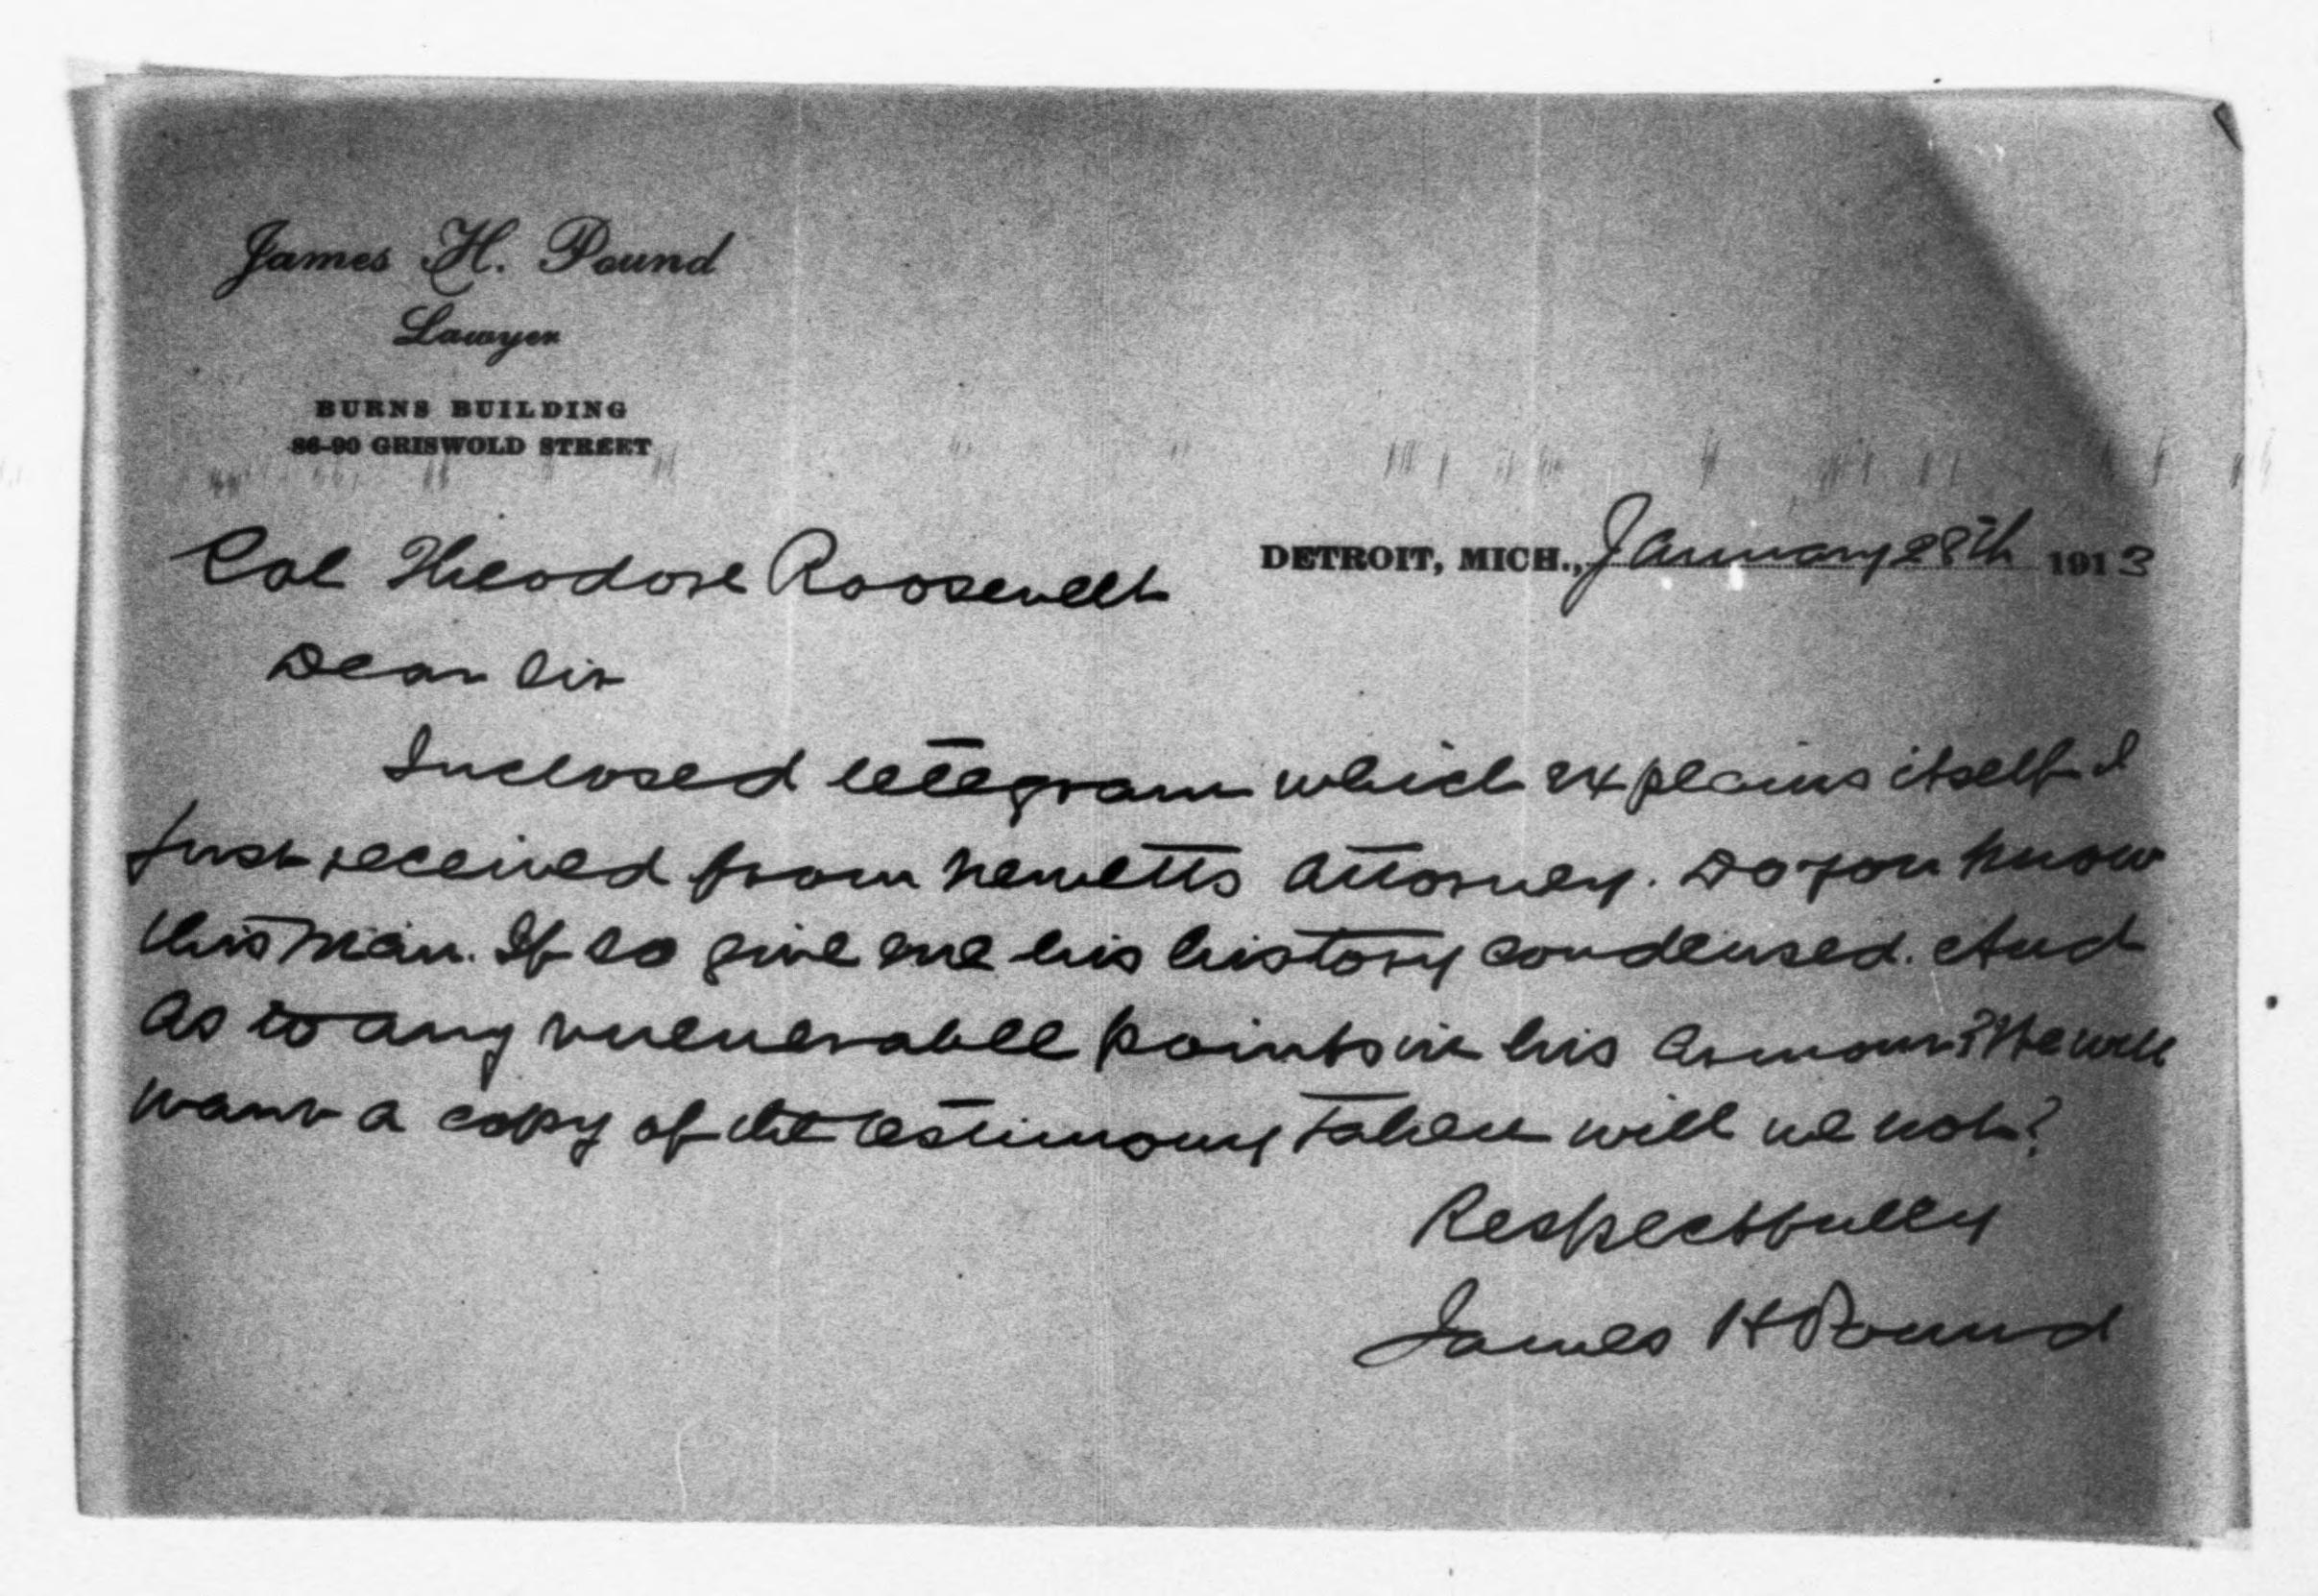 James H. Pound
Lawyer
BURNS BUILDING
86-90 GRISWOLD STREET
DETROIT, MICH., January 28th 1913
Col Theodore Roosevelt
Dear Sir
Inclosed telegram which explains itself I
Just received from Newetts Attorney. Do you know
this man. If so give me his history condensed. And
as to any vulnerable points in his armour? We will
want a copy of the testimony taken will we not?
Respectfully
James H Pound